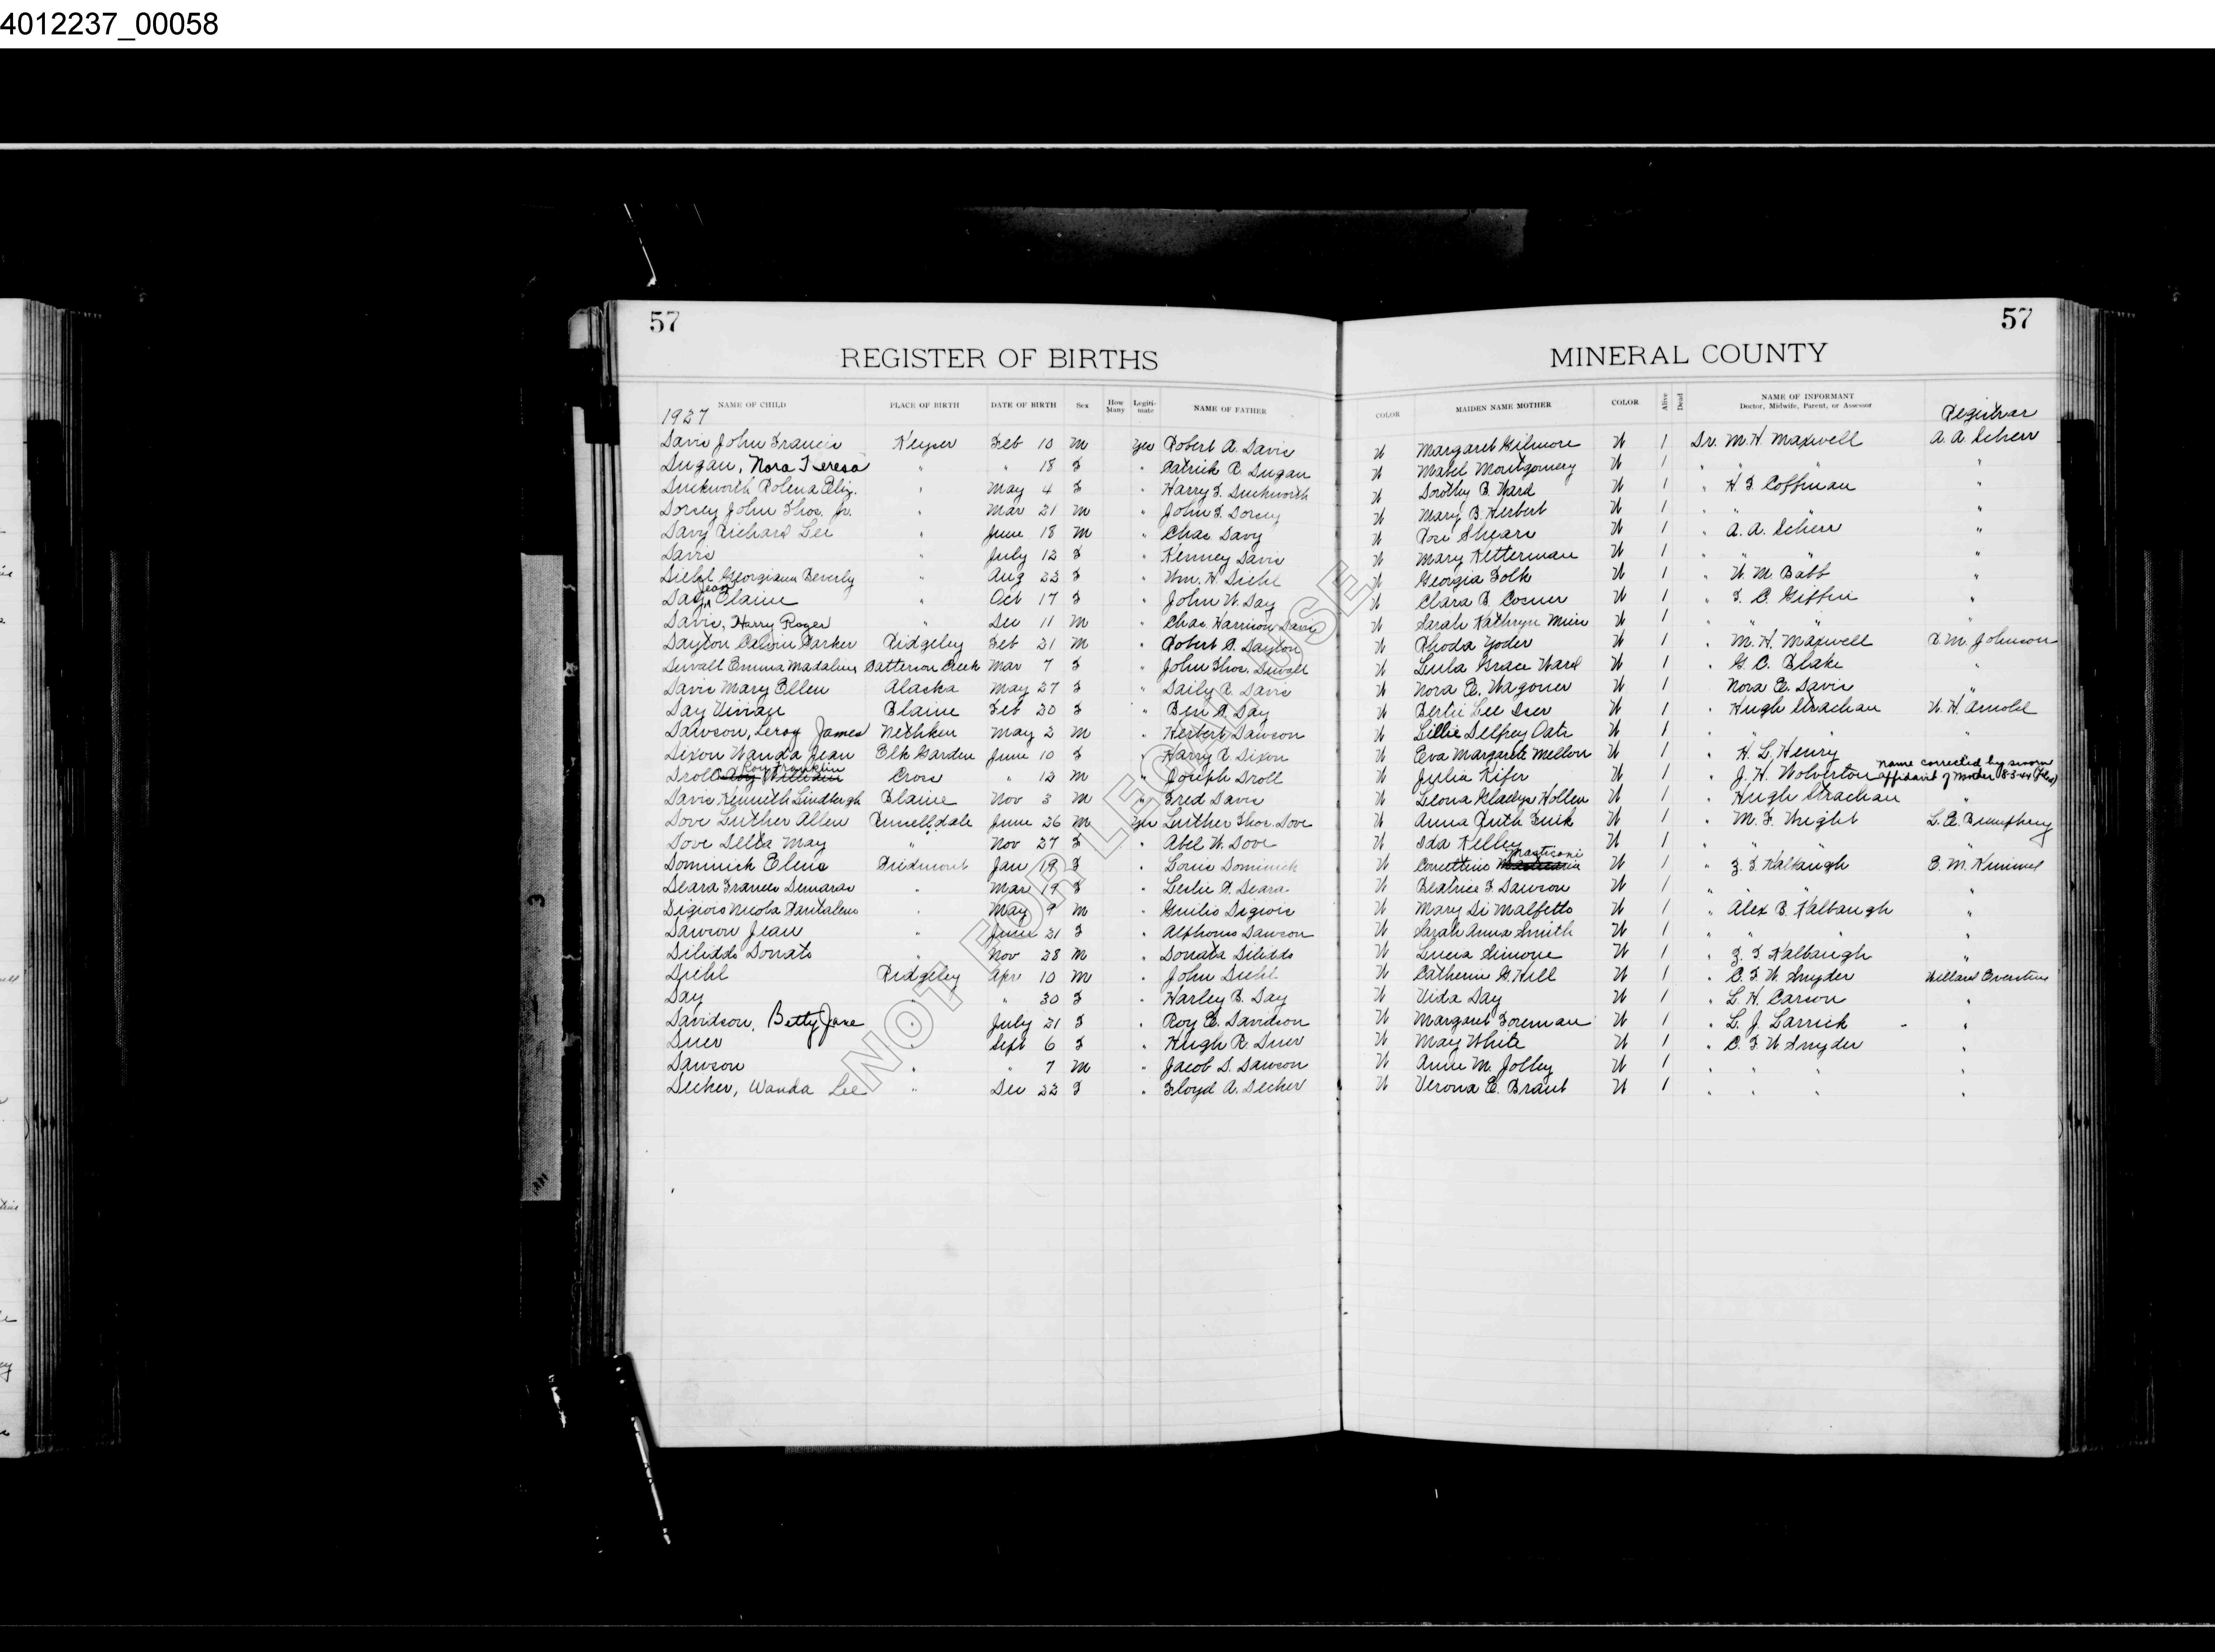 4012237_00058
57 57
REGISTER OF BIRTHS MINERAL COUNTY
NAME OF CHILD PLACE OF BIRTH DATE OF BIRTH Sex How Many Legitimate NAME OF FATHER COLOR MAIDEN NAME MOTHER COLOR Alive Dead NAME OF INFORMANT Doctor, Midwife, Parent, or Assessor Registrar
1927
Davis John Francis Keyser Feb 10 M Yes Robert A. Davis W Margaret Gilmore W 1 Dr. M. H. Maxwell A. A. Scherr
Dugan, Nora Teresa " " 18 F " Patrick R. Dugan W Mabel Montgomery W 1 " " " "
Duckworth Roberta Eliz. " May 4 F " Harry F. Duckworth W Dorothy B. Ward W 1 " H. F. Coffman "
Dorsey John Thos. Jr. " Mar 21 M " John T. Dorsey W Mary B. Herbert W 1 " " " "
Davy Richard Lee " June 18 M " Chas Davy W Rosi Shears W 1 " A. A. Scherr "
Davis " July 12 F " Kenney Davis W Mary Ketterman W 1 " " " "
Diehl Georgianna Beverly " Aug 22 F " Wm. H. Diehl W Georgia Folk W 1 " W. M. Babb "
Day, Jean Elaine " Oct 17 F " John W. Day W Clara B. Cosner W 1 " F. C. Giffin "
Davis, Harry Roger " Dec 11 M " Chas. Harrison Davis W Sarah Kathryn W 1 " " " "
Dayton Calvin Parker Ridgeley Feb 21 M " Robert S. Dayton W Rhoda Yoder W 1 " M. H. Maxwell R. M. Johnson
Duvall Emma Madaline Patterson Creek Mar 7 F " John Thos. Duvall W Lula Grace Ward W 1 " G. C. Blake "
Davis Mary Ellen Alaska May 27 F " Daily R. Davis W Nora E. Wagoner W 1 Nora E. Davis "
Day Vivian Blaine Feb 20 F " Ben A. Day W Bertie Lee W 1 " Hugh Strachan W. H. Arnold
Dawson, Leroy James Nethken May 2 M " Herbert Dawson W Lillie Delphey Oats W 1 " " " "
Dixon Wanda Jean Elk Garden June 10 F " Harry R. Dixon W Eva Margarete Mellon W 1 " H. L. Henry "
Droll Roy Franklin Cross " 12 M " Joseph Droll W Julia Kifer W 1 " J. H. Wolverton name corrected by sworn affidavit of Mother 8-3-44
Davis Kenneth Lindbergh Blaine Nov 3 M " Fred Davis W Leona Gladys Hollen W 1 " Hugh Strachan "
Dove Luther Allen Russelldale June 26 M Yes Luther Thos. Dove W Anna Ruth W 1 " M. F. Wright
Dove Delta May " Nov 27 F " Abel W. Dove W Ida Kelley W 1 " " " "
Dominick Elena Piedmont Jan 19 F " Louis Dominick W Masticani W 1 " Z. T. Kalbaugh E. M. Kimmel
Deara Frances " Mar 19 F " Leslie A. Deara W Beatrice F. Dawson W 1 " " " "
Nicola " May 9 M " W Mary Di Malfetto W 1 " Alex B. Kalbaugh "
Dawson Jean " June 21 F " Alphonso Dawson W Sarah Anna Smith W 1 " " " "
Dilidds Donato " Nov 28 M " Donato Dilidds W Lucia Simone W 1 " Z. T. Kalbaugh "
Diehl Ridgeley Apr 10 M " John Diehl W Catherine G. Hill W 1 " C. F. W. Snyder Willard
Day " " 30 F " Harley B. Day W Vida Day W 1 " L. H. Carson "
Davidson, Betty Jane " July 21 F " Roy E. Davidson W Margaret Foreman W 1 " L. J. Larrick "
Duer " Sept 6 F " Hugh R. Duer W May White W 1 " C. F. W. Snyder "
Dawson " " 7 M " Jacob S. Dawson W Annie M. Jolley W 1 " " " "
Decker, Wanda Lee " Dec 22 F " Floyd A. Decker W Verona E. Brant W 1 " " " "
NOT FOR LEGAL USE
3